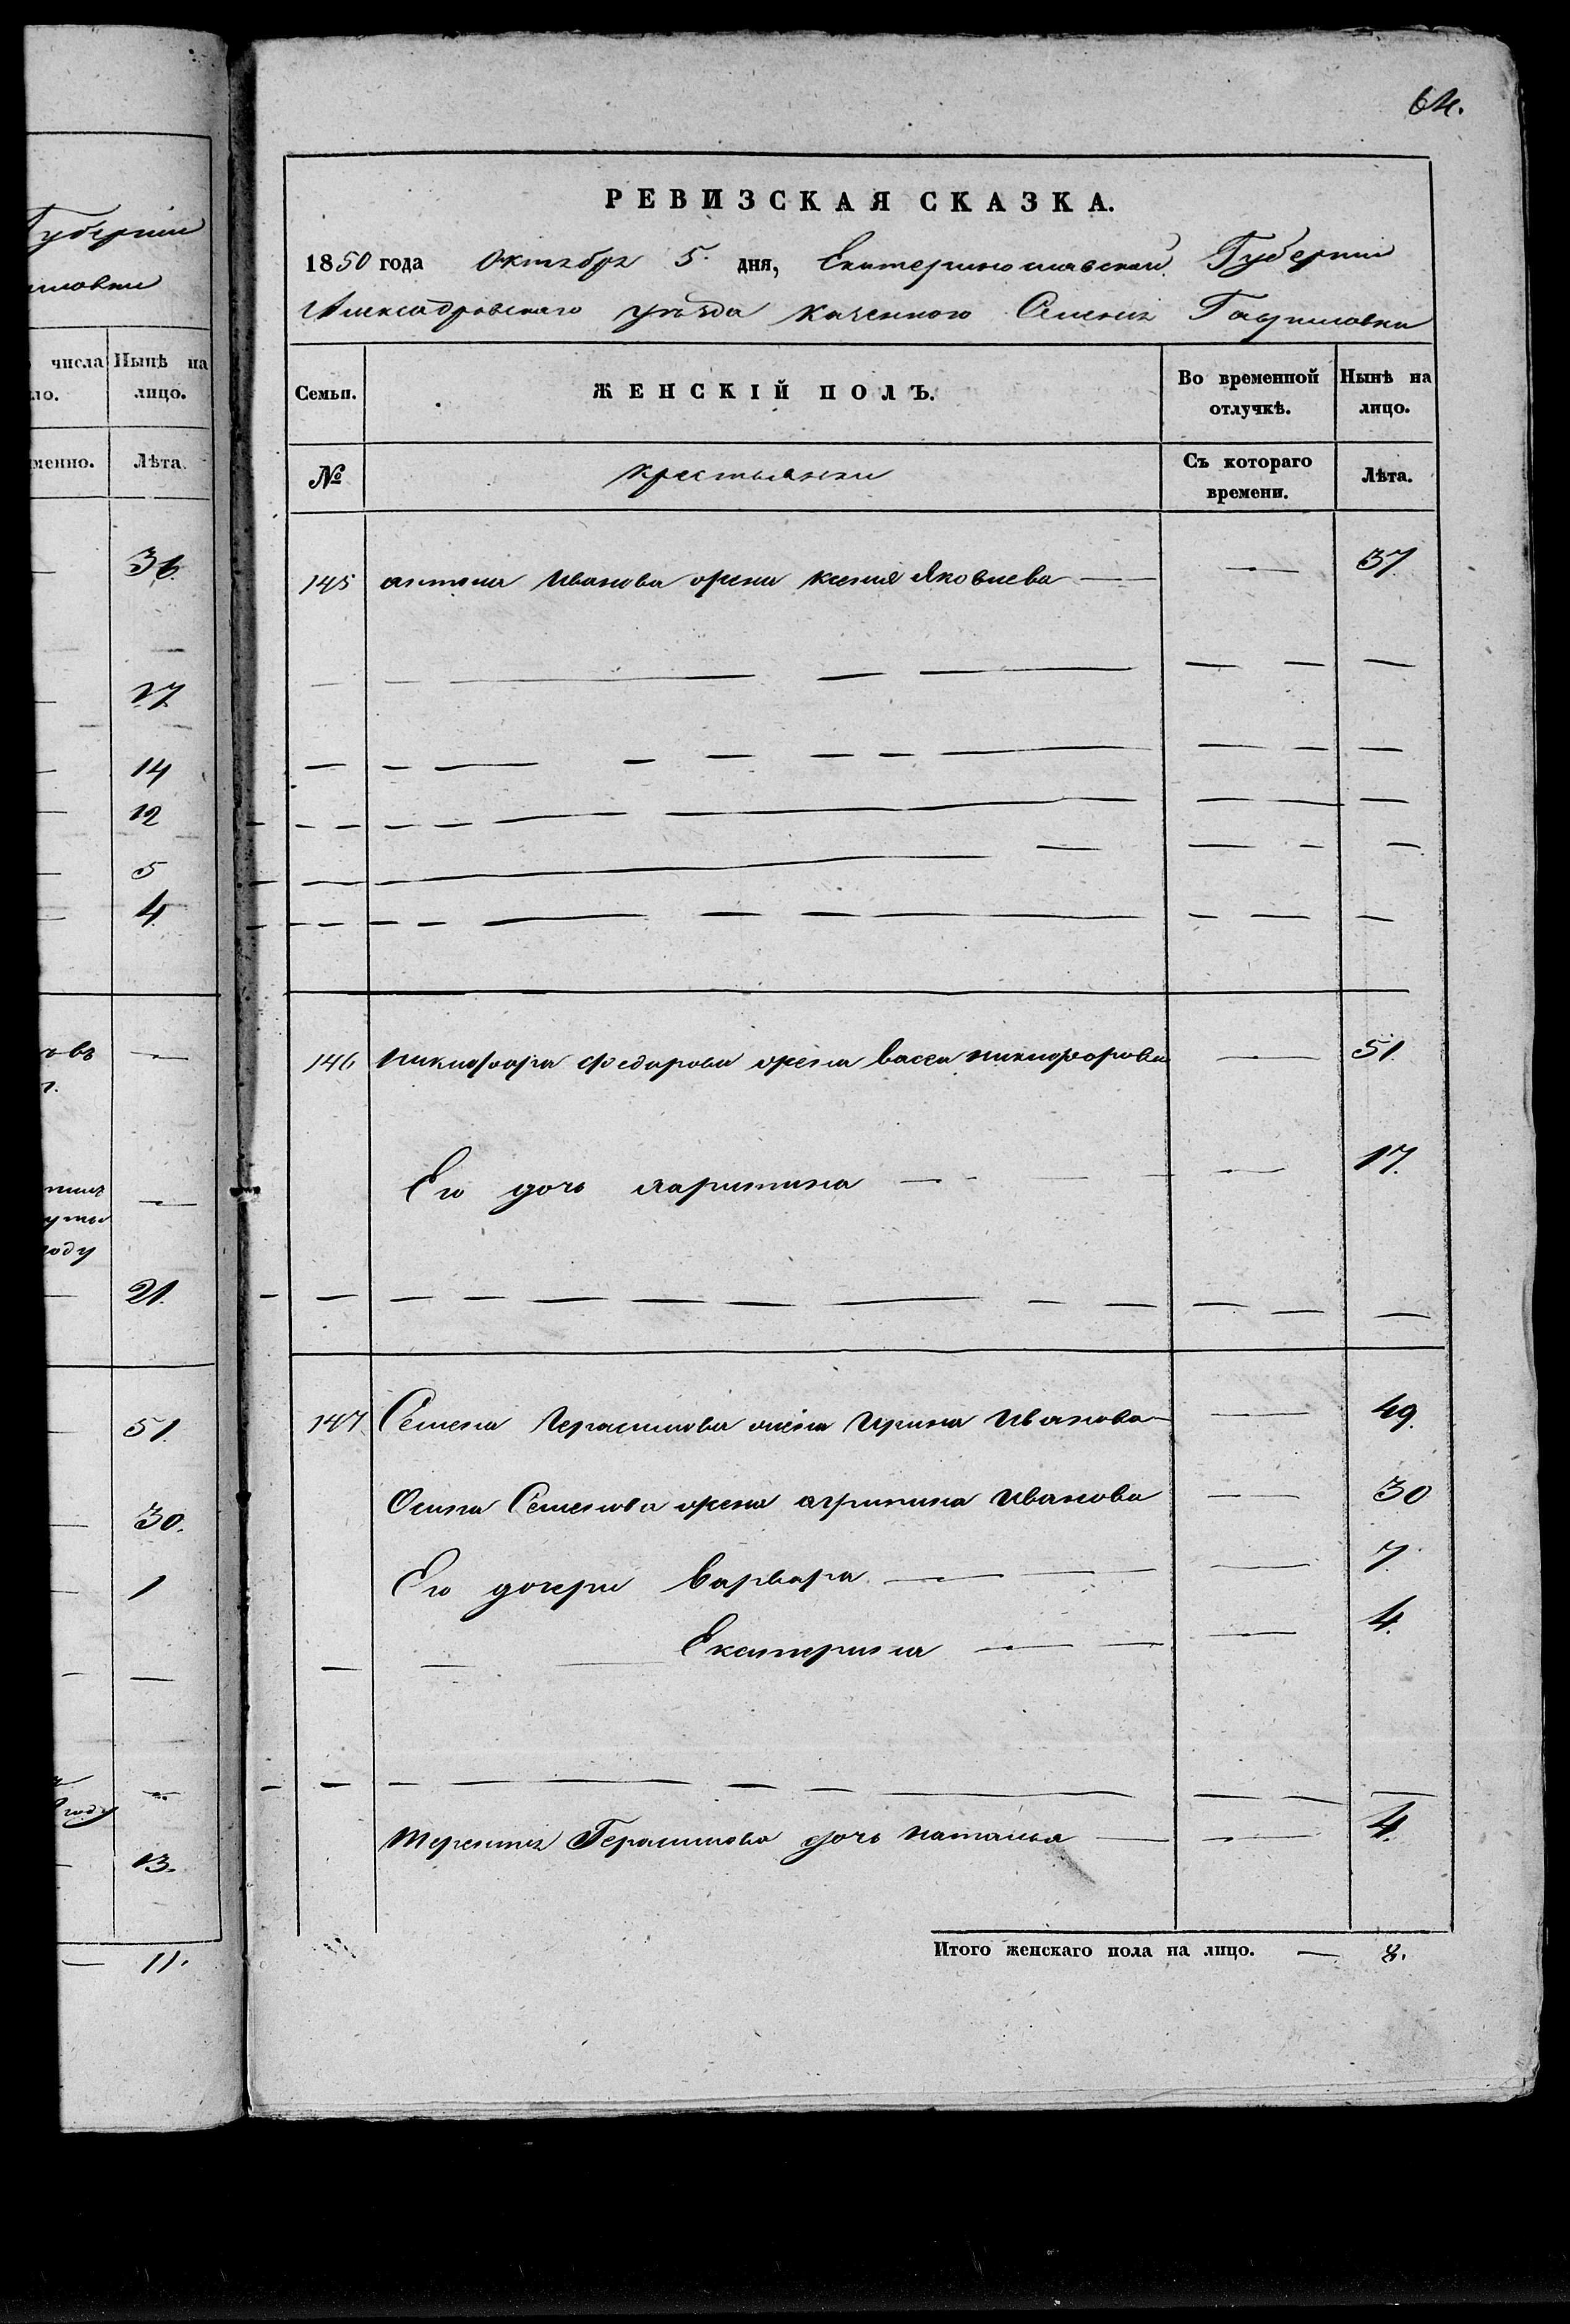 64.
Губернии
иловки
числа Нынѣ на
ло. лицо.
менно. Лѣта.
36.
27
14
12
5
4
въ
году
21.
51.
30.
1
году
13.
11.
РЕВИЗСКАЯ СКАЗКА.
1850 года Октября 5. дня, Екатеринославской Губернии
Александровскаго уѣзда казенного Селения Гавриловки
Семьи. ЖЕНСКІЙ ПОЛЪ. Во временной отлучкѣ. Нынѣ на лицо.
№ крестьянки Съ котораго времени. Лѣта.
145 антона Иванова жена ксения Яковлева — — 37
146 Никифора Федорова жена васса никифорова — 51.
Его дочь — — 17.
147 Семена Герасимова жена Ирина Иванова — — 49.
Осипа Семенова жена агрипина Иванова — 30
Его дочери Варвара — — — 7.
Екатерина — — — 4.
Терентия Герасимова дочь наталья — — 4.
Итого женскаго пола на лицо. — 8.